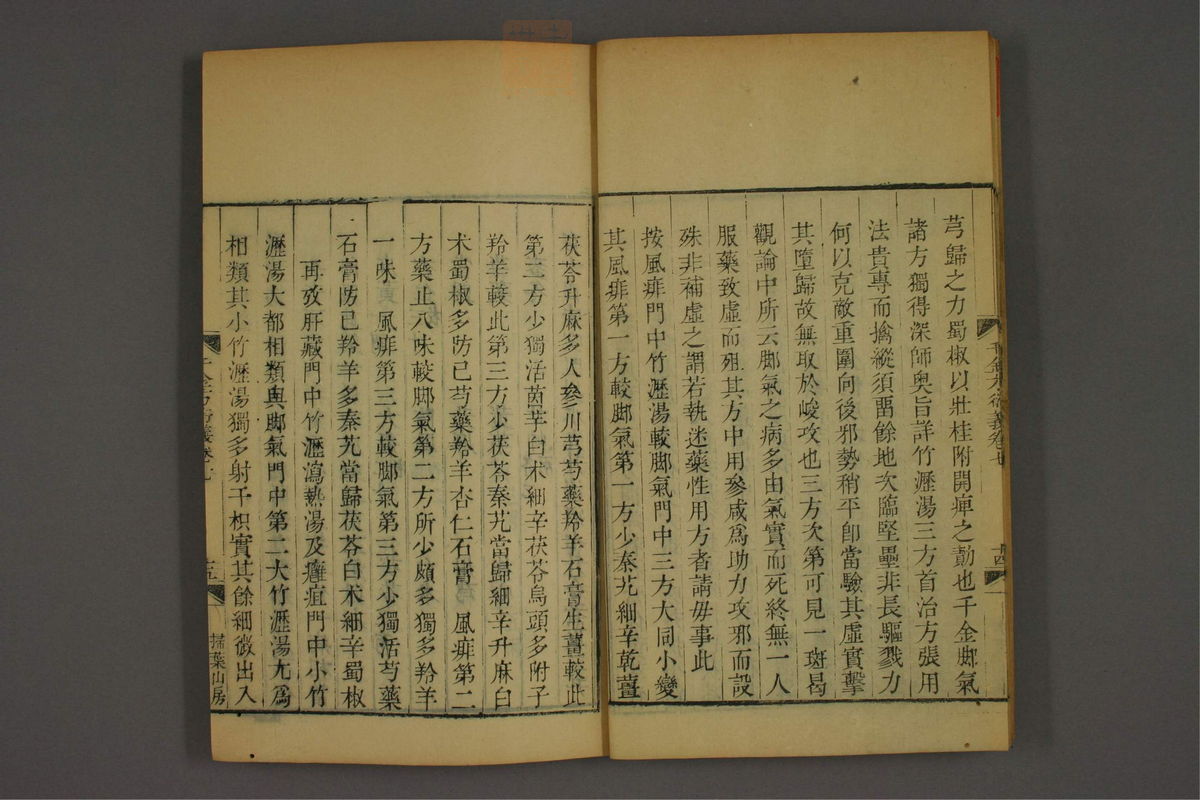 芎歸之力蜀椒以壯桂附開痺之勳也千金腳氣
諸方獨得深師奥旨詳竹瀝湯三方首治方張用
法貴專而擒縱須畱餘地次臨堅壘非長驅戮力
何以克敵重圍向後邪勢稍平卽當驗其虛實擊
其墮歸故無取於峻攻也三方次第可見一斑曷
觀論中所云腳氣之病多由氣實而死終無一人
服藥致虛而殂其方中用參咸爲助力攻邪而設
殊非補虛之謂若執迷藥性用方者請毋事此
按風痱門中竹瀝湯較腳氣門中三方大同小變
其風痱第一方較腳氣第一方少秦艽細辛乾薑
茯苓升麻多人參川芎芍藥羚羊石膏生薑較此
第三方少獨活茵芋白术細辛茯苓烏頭多附子
羚羊較此第三方少茯苓秦艽當歸細辛升麻白
术蜀椒多防已芍藥羚羊杏仁石膏 風痱第二
方藥止八味較腳氣第二方所少頗多獨多羚羊
一味 風痱第三方較腳氣第三方少獨活芍藥
石膏防已羚羊多秦艽當歸茯苓白术細辛蜀椒
再攷肝藏門中竹瀝瀉熱湯及癰疽門中小竹
瀝湯大都相類與腳氣門中第二大竹瀝湯尤爲
相類其小竹瀝湯獨多射干枳實其餘細微出入
千金方衍義卷七
十四
千金方衍義卷七
十五
掃葉山房